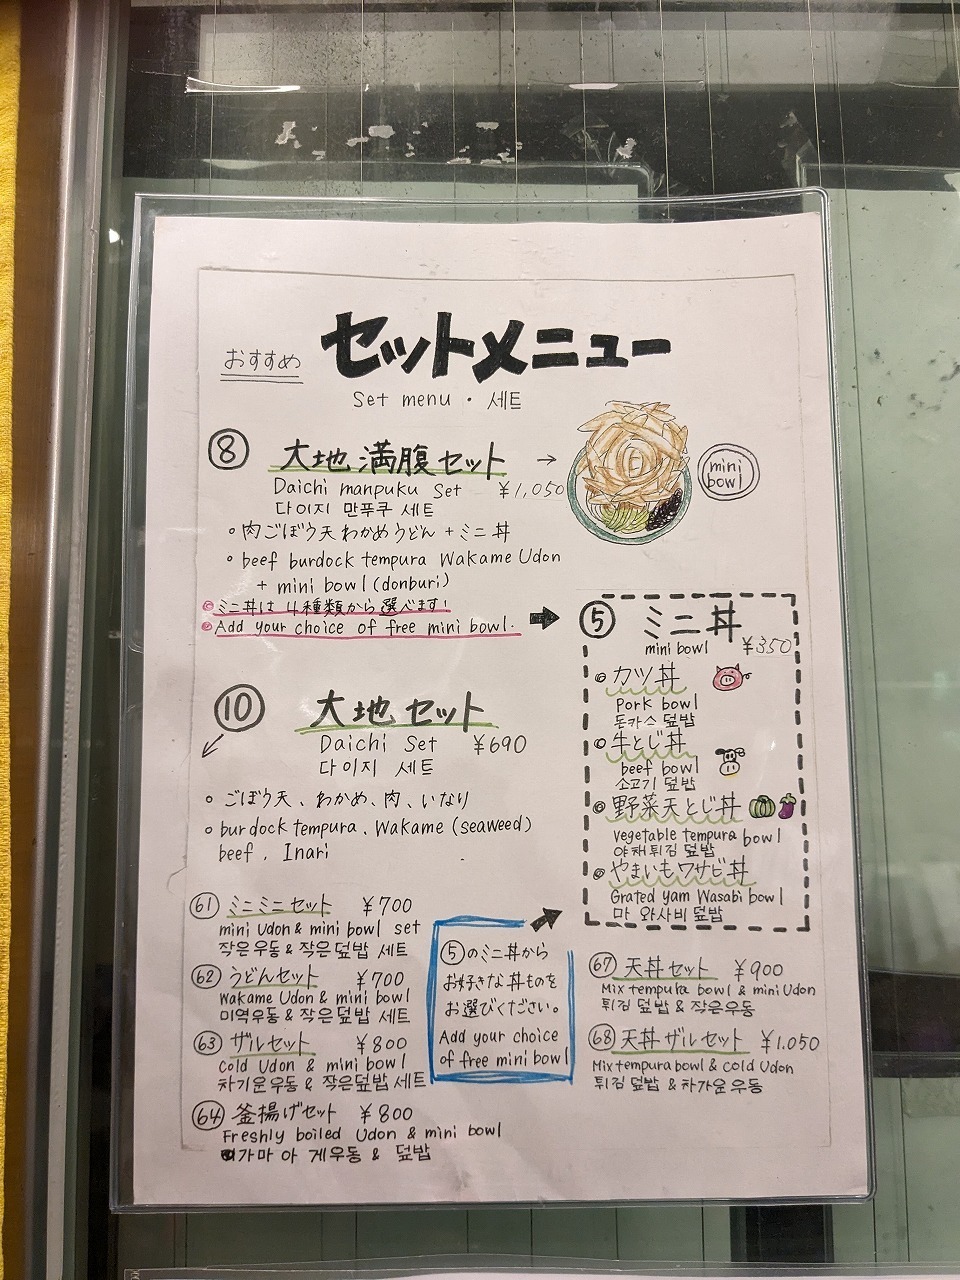 おすすめ
セットメニュー
Set menu・세트
⑧ 大地満腹セット →
Daichi manpuku Set ¥1,050
다이지 만푸쿠 세트
mini bowl
• 肉ごぼう天わかめうどん + ミニ丼
• beef burdock tempura Wakame Udon
+ mini bowl (donburi)
◎ミニ丼は4種類から選べます!
◎Add your choice of free mini bowl.
⑤ ミニ丼
mini bowl ¥350
◎カツ丼
Pork bowl
돈카스 덮밥
◎牛とじ丼
beef bowl
소고기 덮밥
◎野菜天とじ丼
vegetable tempura bowl
야채튀김 덮밥
◎やまいもワサビ丼
Grated yam Wasabi bowl
마 와사비 덮밥
⑩ 大地セット
Daichi Set ¥690
다이지 세트
• ごぼう天、わかめ、肉、いなり
• burdock tempura、Wakame (seaweed)
beef, Inari
61 ミニミニセット ¥700
mini Udon & mini bowl set
작은우동 & 작은덮밥 세트
62 うどんセット ¥700
Wakame Udon & mini bowl
미역우동 & 작은덮밥 세트
63 ザルセット ¥800
Cold Udon & mini bowl
차기운우동 & 작은덮밥세트
64 釜揚げセット ¥800
Freshly boiled Udon & mini bowl
가마 아 게우동 & 덮밥
⑤のミニ丼から
お好きな丼ものを
お選びください。
Add your choice
of free mini bowl
67 天丼セット ¥900
Mix tempura bowl & mini Udon
튀김 덮밥 & 작은우동
68 天丼ザルセット ¥1.050
Mix tempura bowl & cold Udon
튀김 덮밥 & 차가운우동